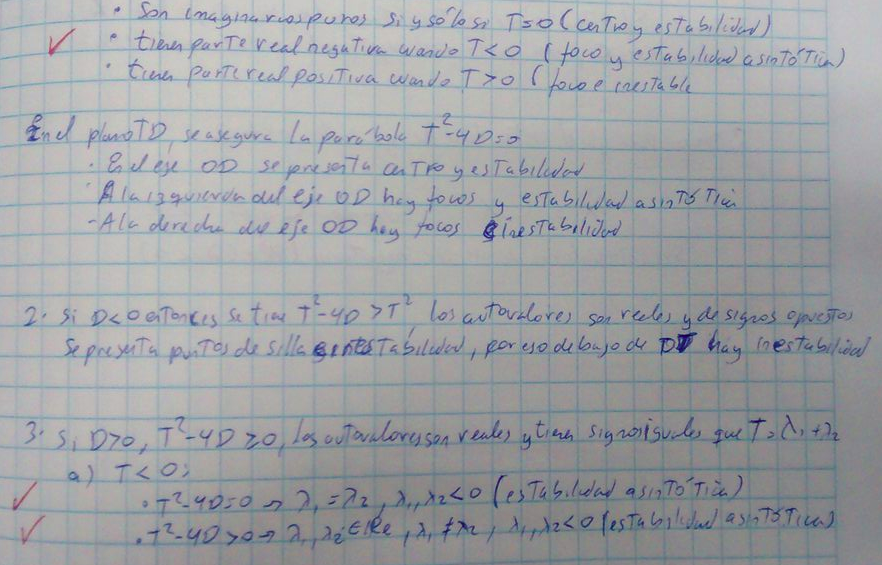 • Son imaginarios puros si y sólo si T=0 (centro y estabilidad)
• tienen parte real negativa cuando T<0 (foco y estabilidad asintótica)
• tienen parte real positiva cuando T>0 (foco e inestable
En el plano TD, se asegura la parábola T²-4D=0
• En el eje OD se presenta centro y estabilidad
• A la izquierda del eje OD hay focos y estabilidad asintótica
- A la derecha del eje OD hay focos inestabilidad
2. Si D<0 entonces se tiene T²-4D>T², los autovalores son reales y de signos opuestos
Se presenta puntos de silla inestabilidad, por eso debajo de DT hay inestabilidad
3. Si D>0, T²-4D≥0, los autovalores son reales y tienen signos iguales que T=λ₁+λ₂
a) T<0:
• T²-4D=0 → λ₁=λ₂, λ₁,λ₂<0 (estabilidad asintótica)
• T²-4D>0 → λ₁,λ₂∈Re, λ₁≠λ₂, λ₁,λ₂<0 (estabilidad asintótica)